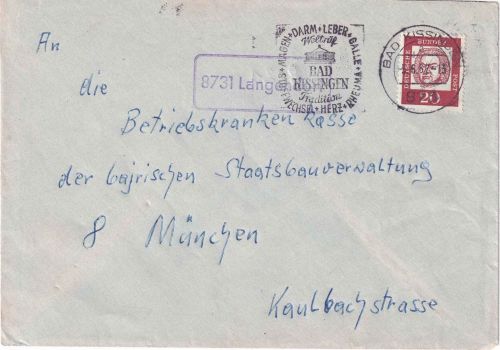 An
die
Betriebskrankenkasse
der bajrischen Staatsbauverwaltung
8 München
Kaulbachstrasse
8731 Langen
MAGEN + DARM + LEBER + GALLE + RHEUMA + HERZ
Weltruf
BAD
KISSINGEN
Tradition
BAD KISSINGEN
DEUTSCHE
BUNDESPOST
20